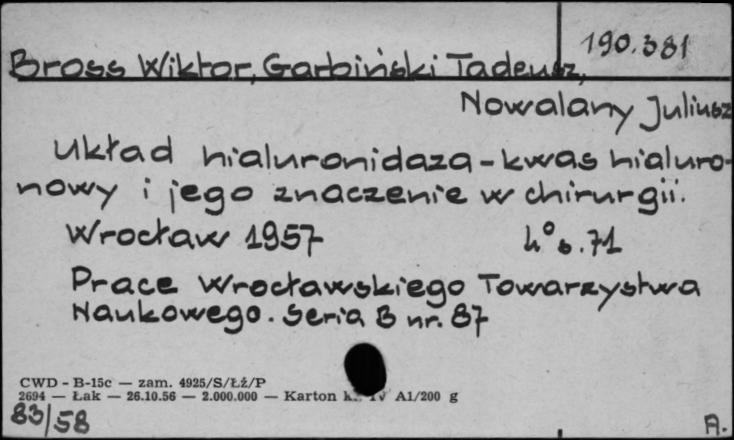 190.381
Bross Wiktor, Garbiński Tadeusz,
Nowalany Juliusz
Układ hialuronidaza - kwas hialuro-
nowy i jego znaczenie w chirurgii.
Wrocław 1957 4° s. 71
Prace Wrocławskiego Towarzystwa
Naukowego. Seria B nr. 87
CWD - B-15c — zam. 4925/S/Łź/P
2694 — Łak — 26.10.56 — 2.000.000 — Karton IV A1/200 g
83/58
A.